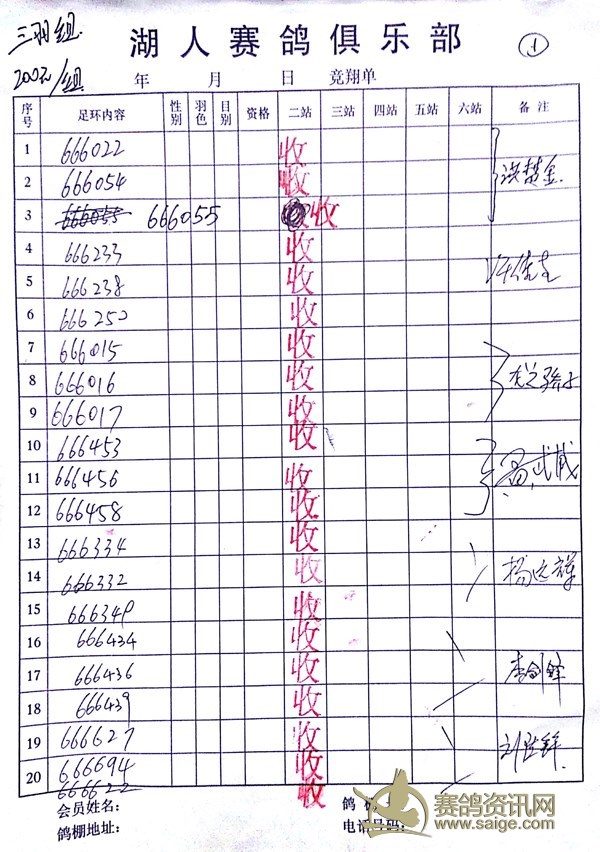 三羽组
湖人赛鸽俱乐部
1
200元/组
年 月 日 竞翔单
序号 足环内容 性别 羽色 目别 资格 二站 三站 四站 五站 六站 备注
1 666022 收
2 666054 收
3 666055 666055 收
4 666233 收
5 666238 收
6 666250 收
7 666015 收
8 666016 收
9 666017 收
10 666453 收
11 666456 收
12 666458 收
13 666334 收
14 666332 收
15 666349 收
16 666434 收
17 666436 收 李剑锋
18 666439 收
19 666627 收
20 666694 收
666622 收
会员姓名: 鸽
鸽棚地址: 电话号码:
赛鸽资讯网
www.saige.com